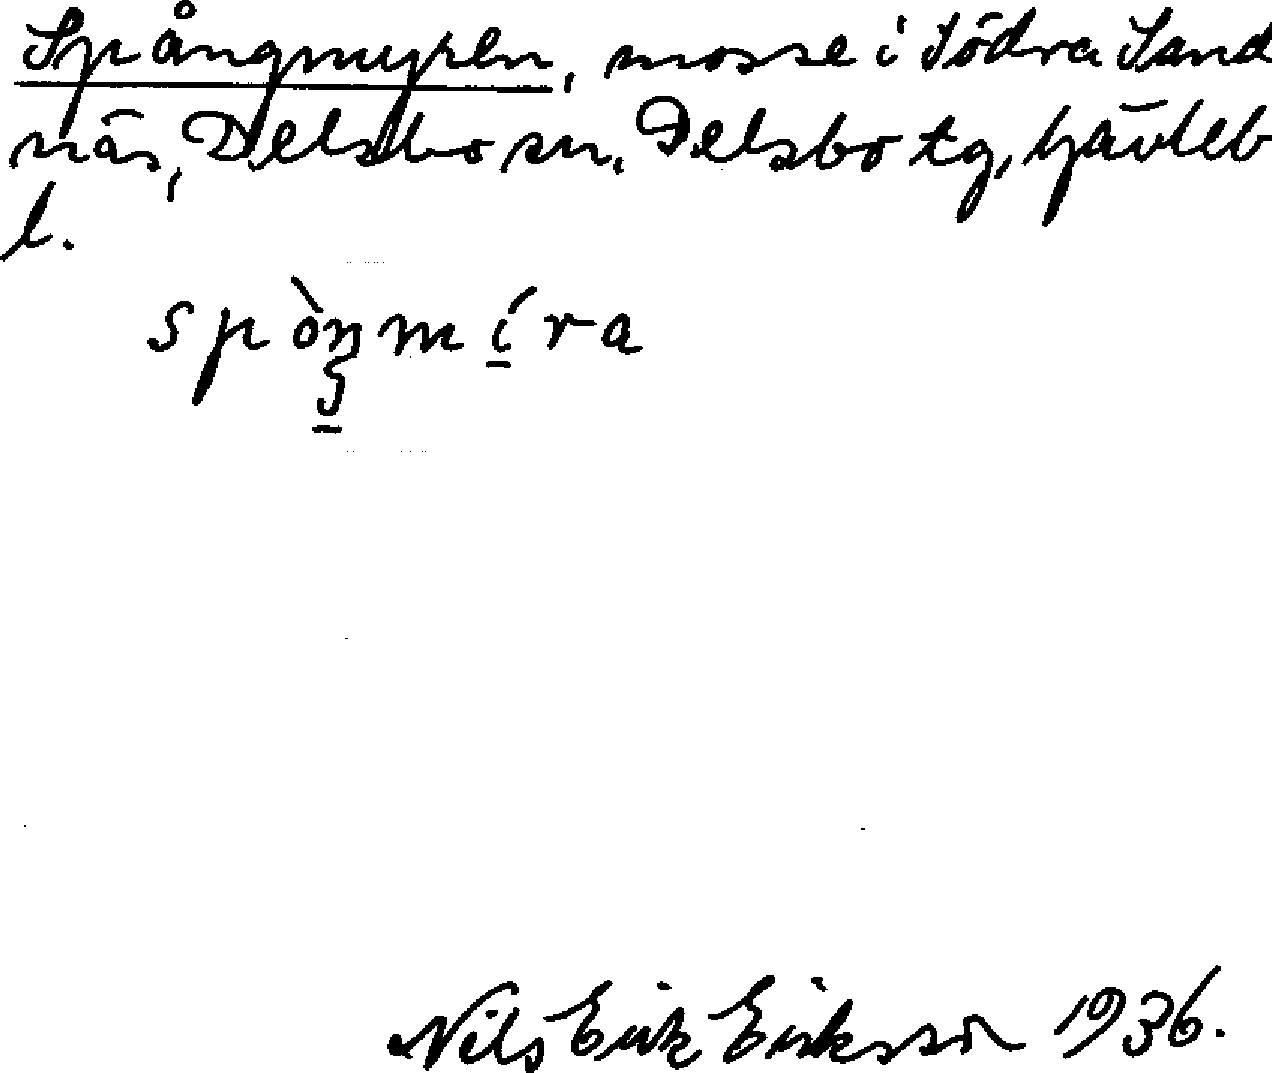 Spångmyren, mosse i Södra Sand
näs, Delsbo sn. Delsbo tg, Gävleb
l.
spòŋmíra
Nils Erik Eriksson 1936.